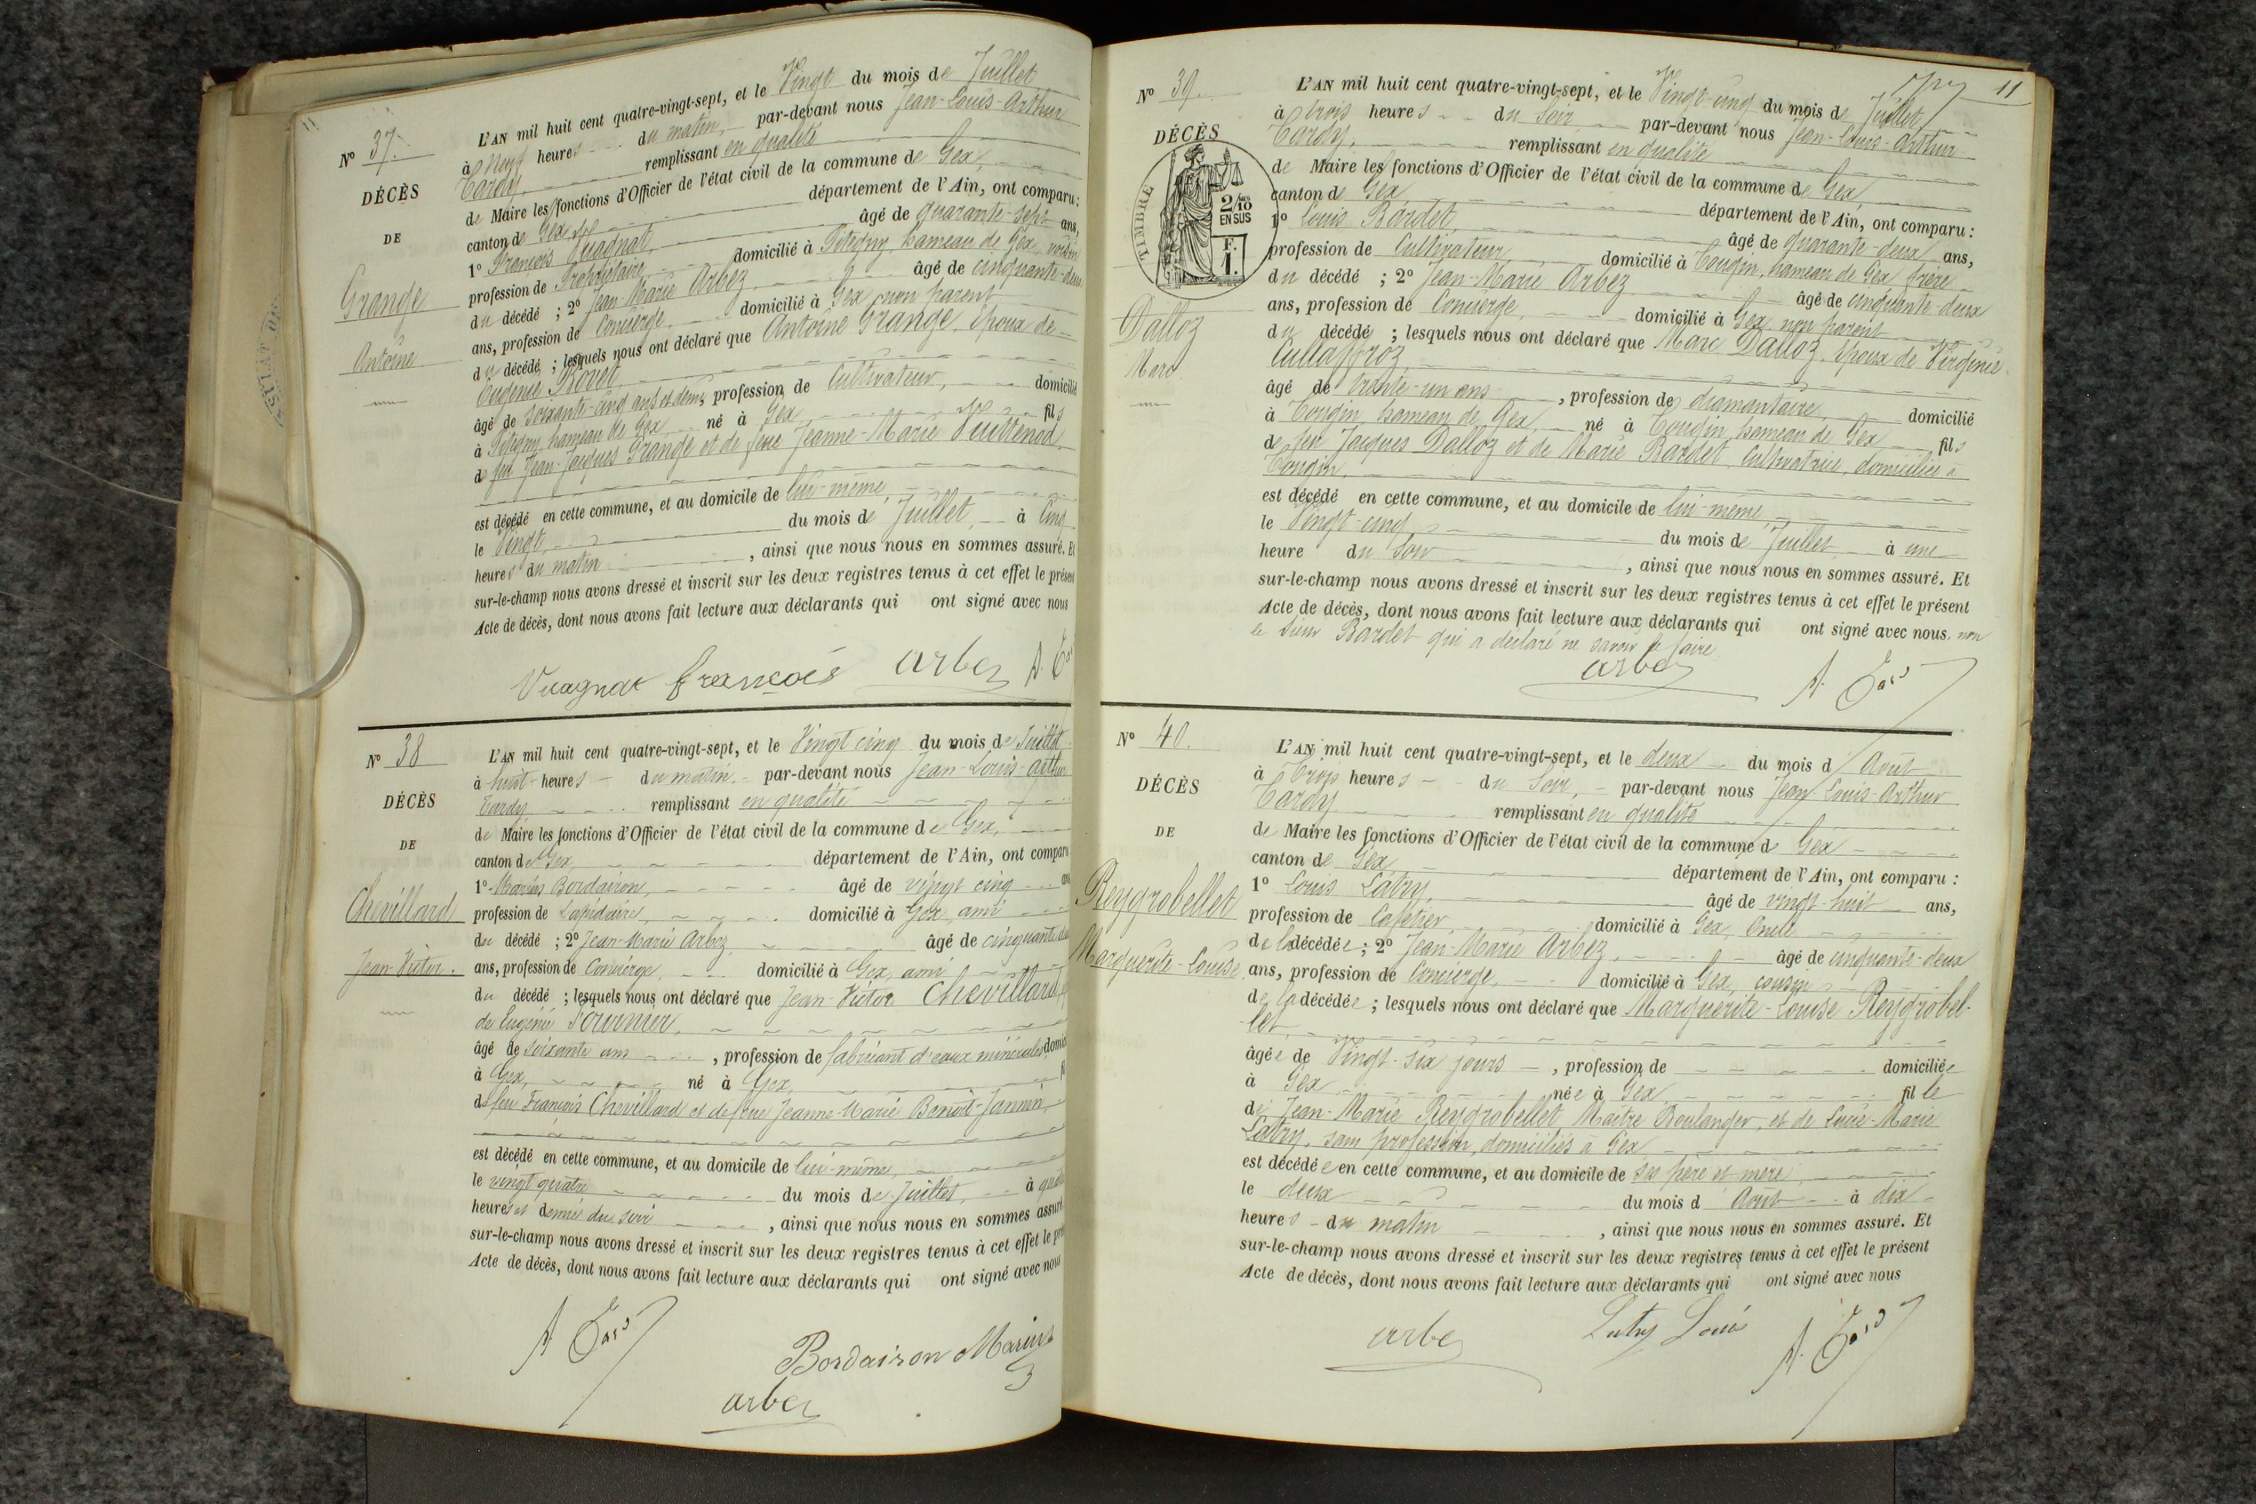 11
N° 37.
DÉCÈS
DE
Grange
Antoine
L'AN mil huit cent quatre-vingt-sept, et le Vingt du mois de Juillet
à Neuf heures du matin, par-devant nous Jean-Louis-Arthur
Tardy, remplissant en qualité
de Maire les fonctions d'Officier de l'état civil de la commune de Gex,
canton de Gex département de l'Ain, ont comparu :
1° François Vuagnat, âgé de quarante-sept ans,
profession de Propriétaire domicilié à Pitegny, hameau de Gex, voisin
du décédé ; 2° Jean-Marie Arbez, âgé de cinquante-deux
ans, profession de Concierge, domicilié à Gex non parent
du décédé ; lesquels nous ont déclaré que Antoine Grange, époux de
Eugénie Rovet,
âgé de soixante-cinq ans et demi, profession de Cultivateur, domicilié
à Pitegny hameau de Gex né à Gex fils
de feu Jean-Jacques Grange et de feue Jeanne-Marie Vuittenod,
est décédé en cette commune, et au domicile de lui-même,
le Vingt, du mois de Juillet, à Cinq
heures du matin, ainsi que nous nous en sommes assuré. Et
sur-le-champ nous avons dressé et inscrit sur les deux registres tenus à cet effet le présent
Acte de décès, dont nous avons fait lecture aux déclarants qui ont signé avec nous
Vuagnat françois arbez
N° 38
DÉCÈS
DE
Chevillard
Jean-Victor.
L'AN mil huit cent quatre-vingt-sept, et le Vingt cinq du mois de Juillet
à huit heures du matin, par-devant nous Jean-Louis-Arthur
Tardy remplissant en qualité
de Maire les fonctions d'Officier de l'état civil de la commune de Gex,
canton de Gex département de l'Ain, ont comparu
1° Marius Bordairon, âgé de vingt cinq
profession de Lapidaire, domicilié à Gex, ami
du décédé ; 2° Jean-Marie Arbez, âgé de cinquante
ans, profession de Concierge, domicilié à Gex, ami
du décédé ; lesquels nous ont déclaré que Jean-Victor Chevillard
de Eugénie Fournier,
âgé de soixante ans, profession de fabricant d'eaux minérales
à Gex, né à Gex,
de feu François Chevillard et de feue Jeanne-Marie Benoit-Jannin,
est décédé en cette commune, et au domicile de lui-même,
le vingt quatre du mois de Juillet, à
heures et demie du soir, ainsi que nous nous en sommes assuré
sur-le-champ nous avons dressé et inscrit sur les deux registres tenus à cet effet le
Acte de décès, dont nous avons fait lecture aux déclarants qui ont signé avec nous
Bordairon Marius
arbez
11
N° 39.
DÉCÈS
TIMBRE
2/10
EN SUS
F.
1.
Dalloz
Marc
L'AN mil huit cent quatre-vingt-sept, et le Vingt-cinq du mois de Juillet
à trois heures du soir par-devant nous Jean-Louis-Arthur
Tardy, remplissant en qualité
de Maire les fonctions d'Officier de l'état civil de la commune de Gex,
canton de Gex département de l'Ain, ont comparu :
1° Louis Bardet, âgé de quarante-deux ans,
profession de Cultivateur, domicilié à Tougin, hameau de Gex, frère
du décédé ; 2° Jean-Marie Arbez âgé de cinquante-deux
ans, profession de Concierge, domicilié à Gex, non parent
du décédé ; lesquels nous ont déclaré que Marc Dalloz, époux de Virginie
Cullaffroz
âgé de trente-un ans, profession de diamantaire, domicilié
à Tougin hameau de Gex, né à Tougin, hameau de Gex fils
de feu Jacques Dalloz et de Marie Bardet, Cultivatrice, domiciliée à
Tougin,
est décédé en cette commune, et au domicile de lui-même
le Vingt-cinq du mois de Juillet à une
heure du soir, ainsi que nous nous en sommes assuré. Et
sur-le-champ nous avons dressé et inscrit sur les deux registres tenus à cet effet le présent
Acte de décès, dont nous avons fait lecture aux déclarants qui ont signé avec nous, non
le sieur Bardet qui a déclaré ne savoir le faire
arbez
N° 40.
DÉCÈS
DE
Reygrobellet
Marguerite-Louise
L'AN mil huit cent quatre-vingt-sept, et le deux du mois d'Août
à Trois heures du Soir, par-devant nous Jean Louis-Arthur
Tardy remplissant en qualité
de Maire les fonctions d'Officier de l'état civil de la commune de Gex
canton de Gex département de l'Ain, ont comparu :
1° Louis Latry, âgé de vingt-huit ans,
profession de Cafetier domicilié à Gex, Oncle
de la décédée ; 2° Jean-Marie Arbez, âgé de cinquante-deux
ans, profession de Concierge, domicilié à Gex, cousin
de la décédée ; lesquels nous ont déclaré que Marguerite-Louise Reygrobel-
let
âgée de Vingt-six jours, profession de domiciliée
à Gex née à Gex fille
de Jean-Marie Reygrobellet Maître Boulanger, et de Marie
Latry, sans profession, domiciliés à Gex
est décédée en cette commune, et au domicile de ses père et mère,
le deux du mois d'Août à dix
heures du matin, ainsi que nous nous en sommes assuré. Et
sur-le-champ nous avons dressé et inscrit sur les deux registres tenus à cet effet le présent
Acte de décès, dont nous avons fait lecture aux déclarants qui ont signé avec nous
arbez Latry Louis